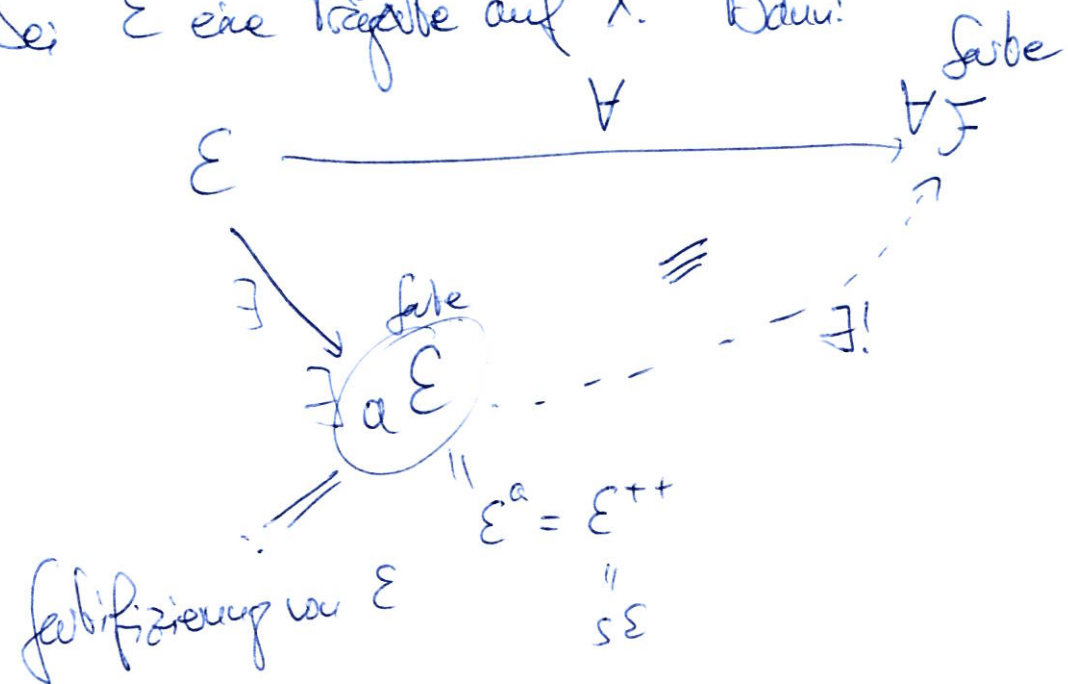 Sei ℰ eine Prägarbe auf X. Dann:
Garbe
∀
ℰ
∀ ℱ
∃
Garbe
∃!
∃ aℰ
ℰᵃ = ℰ⁺⁺
Garbifizierung von ℰ
sℰ